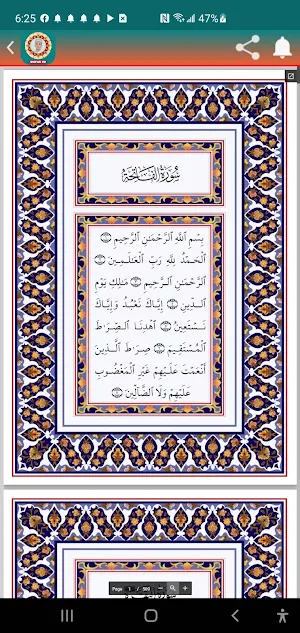 6:25
47%
سُورَةُ الْفَاتِحَةِ
بِسْمِ ٱللَّهِ ٱلرَّحْمَٰنِ ٱلرَّحِيمِ ۝
ٱلْحَمْدُ لِلَّهِ رَبِّ ٱلْعَٰلَمِينَ ۝
ٱلرَّحْمَٰنِ ٱلرَّحِيمِ ۝ مَٰلِكِ يَوْمِ
ٱلدِّينِ ۝ إِيَّاكَ نَعْبُدُ وَإِيَّاكَ
نَسْتَعِينُ ۝ ٱهْدِنَا ٱلصِّرَٰطَ
ٱلْمُسْتَقِيمَ ۝ صِرَٰطَ ٱلَّذِينَ
أَنْعَمْتَ عَلَيْهِمْ غَيْرِ ٱلْمَغْضُوبِ
عَلَيْهِمْ وَلَا ٱلضَّآلِّينَ ۝
Page 1 / 509